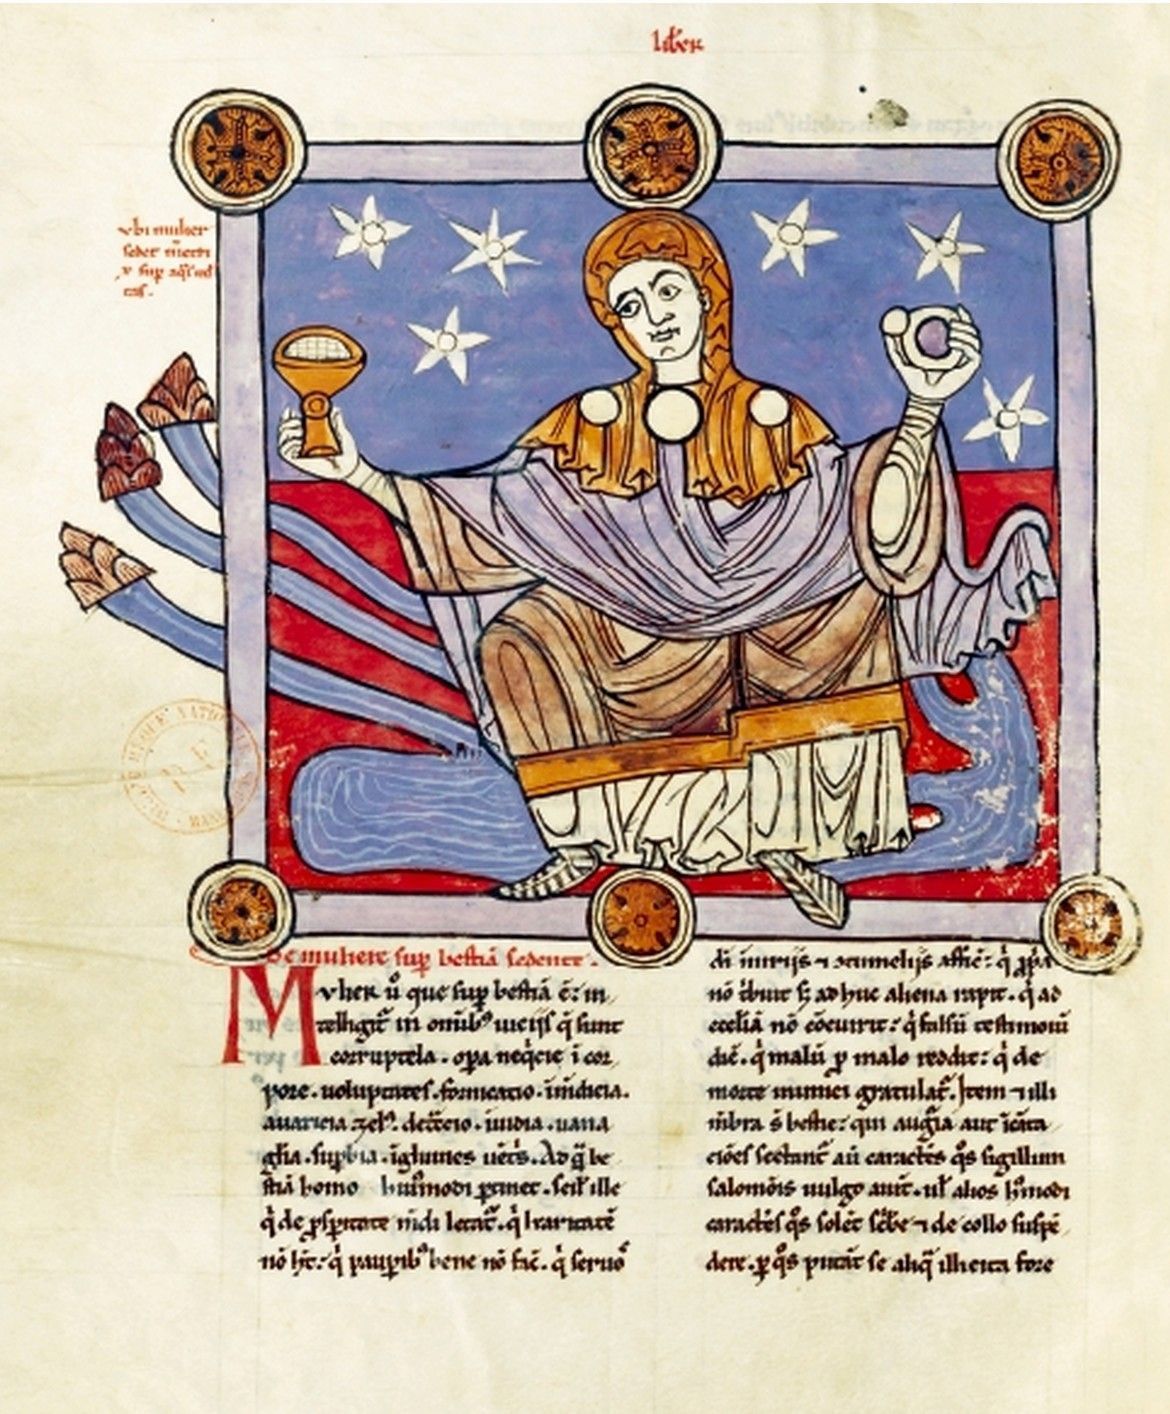 liber
ubi mulier
sedet
sup̄
De muliere sup̄ bestiā sedente.
Mulier ů que sup̄ bestiā ē: in
telligit̄ in omīb⁹ uicijs q̄ sunt
corruptela. opa neq̄cie ī cor
pore. uoluptates. fornicatio. īmūdicia.
auaricia zel⁹. detc̄cio. īuidia. uana
gl̄ia. supbia. Ad q̄ be
stiā homo ptinet. ille
q̄ de psp̄itate mūdi letat̄. q̄ karitatē
nō ht̄: q̄ paupib⁹ bene nō fac̄. q̄ seruo
di iniurijs ⁊ ctumelijs affic̄: q̄ ppa
nō tbuit sƺ adhuc aliena rapit. q̄ ad
ecclīā nō cōeuirit: q̄ falsū testimoniū
dic̄. q̄ malū p malo reddit: q̄ de
morte inimici gratulat̄. Item ⁊ illi
mēbra s̄ bestie: qui auguria aut īcāta
ciōes sectant̄ aū caractēs q̄s sigillum
salomōis uulgo aiūt. ul̄ alios hmodi
caractēs q̄s solēt sc̄be ⁊ de collo suspē
dere. p q̄s putāt se aliq̄ illicita fore